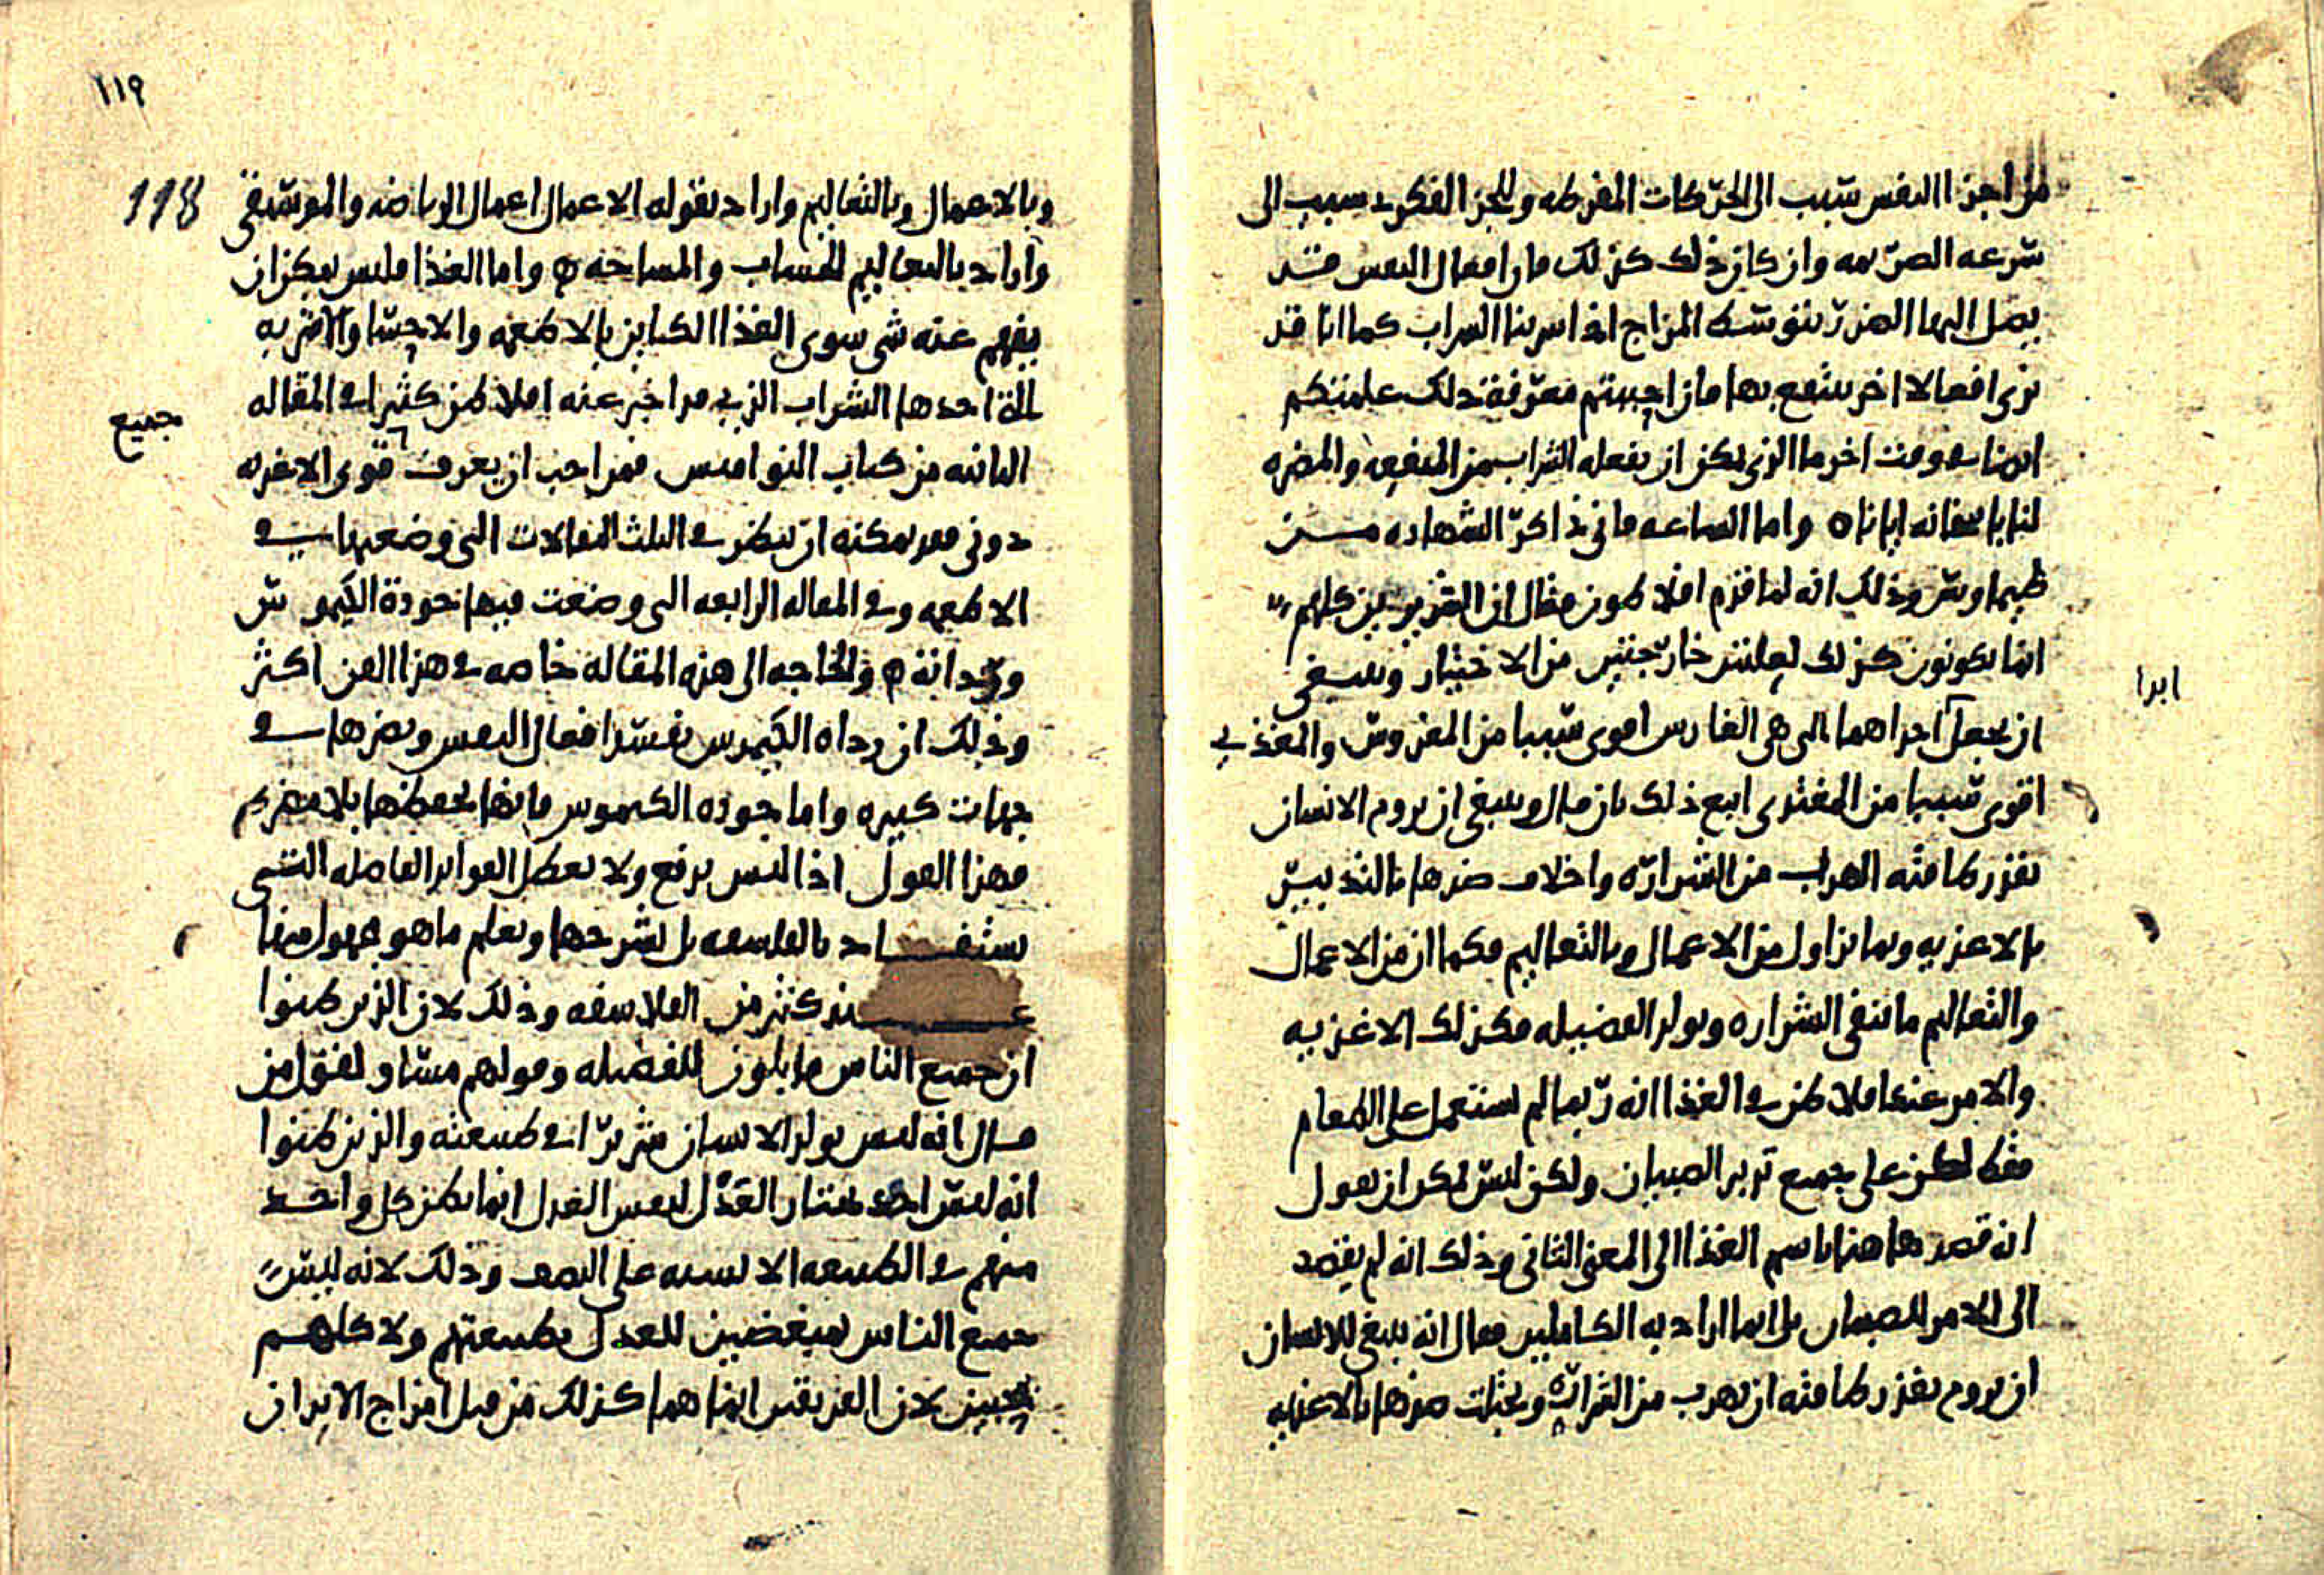 من اجزا النفس سبب الى الحركات المفرطه والجز الفكري سبب الى
سرعه الصريمه وان كان ذلك كذلك فان افعال النفس قد
يصل اليها الضرر بتوسط المزاج اذا اسرنا الشراب كما انا قد
نرى افعالا اخر ينتفع بها فان احببتم معرفة ذلك علمتكم
ايضا في وقت اخر ما الذي يمكن ان يفعله الشراب من المنفعه والمضره
لنا با انانا ه واما الساعه فاني ذاكر الشهاده من
طيماوس وذلك انه لما قدم افلاطون فقال ان الشريرين كلهم
انما يكونون كذلك لعلتين خارجتين من الاختيار وينبغي
ابدا
ان يجعل احداهما التي هي الغارس اقوى سببا من المغروس والمغذي
اقوى سببا من المغتذي اتبع ذلك بان قال وينبغي ان يروم الانسان
بقدر طاقته الهرب من الشراره واخلاف ضدها بالتدبير
بالاغذيه وبما يزاول من الاعمال وبالتعاليم فكما ان من الاعمال
والتعاليم ما ينفي الشراره ويولد الفضيله فكذلك الاغذيه
والامر عند افلاطن في الغذا انه ربما لم يستعمل على الطعام
فقط لكن على جميع تدبير الصبيان ولكن ليس يمكن ان يقول
انه قصد هاهنا باسم الغذا الى المعنى الثاني وذلك انه لم يقصد
الى الامر للصبيان بل انما اراد به الكاملين فقال انه ينبغي للانسان
ان يروم بقدر طاقته ان يهرب من الشراره ضدها بالاغذيه
١١٩
118
وبالاعمال وبالتعاليم واراد بقوله الاعمال اعمال الرياضه والموسيقى
واراد بالتعاليم الحساب والمساحه ه واما الغذا فليس يمكن ان
يفهم عنه شي سوى الغذا الكاين بالاطعمه والاحسا والاشربه
التي احدها الشراب الذي قد اخبر عنه افلاطن كثيرا في المقاله
الثانيه من كتاب النواميس فمن احب ان يعرف قوى الاغذيه
جميع
دوني فقد يمكنه ان ينظر في الثلث المقالات التي وضعتها في
الاطعمه وفي المقاله الرابعه التي وضعت فيها جودة الكيموس
ورداته ه والحاجه الى هذه المقالة خاصه في هذا الفن اكثر
وذلك ان رداه الكيموس يفسد افعال النفس ويضرها في
جهات كثيره واما جوده الكيموس فانها يحفظها بلا مضره
فهذا القول اذا ليس يرفع ولا يعطل الفوايد الفاضله التي
يستفاد بالفلسفه بل يشرحها ويعلم ما هو مجهول منها
عند كثير من الفلاسفه وذلك لان الذين ظنوا
ان جميع الناس قابلون للفضيله وقولهم مساو لقول من
قال انه ليس يولد الانسان شريرا في طبيعته والذين ظنوا
انه ليس احد يختار العدل لنفس العدل انما يظن كل واحد
منهم في الطبيعه الانسيه على النصف وذلك لانه ليس
جميع الناس مبغضين للعدل بطبيعتهم ولا كلهم
محبين لان الفريقين انما هما كذلك من قبل امزاج الابدان